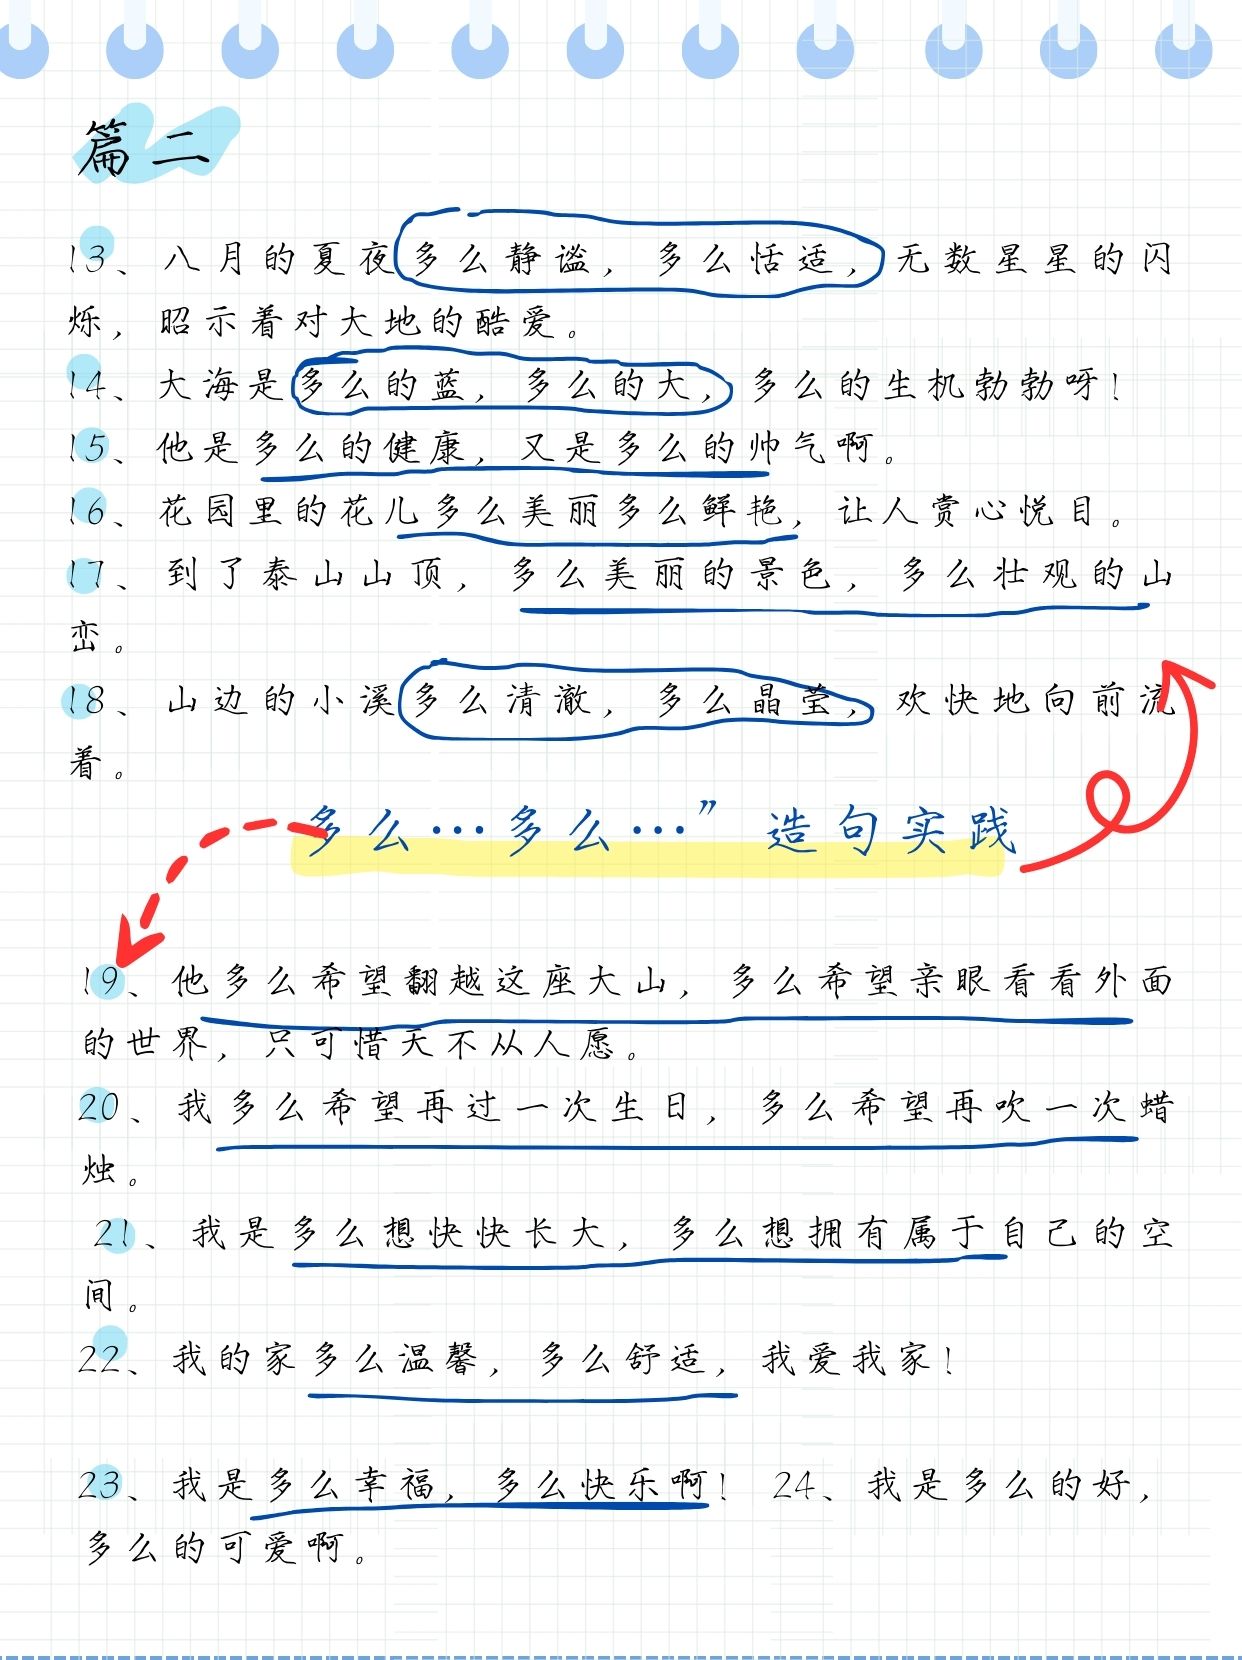 篇二
13、八月的夏夜多么静谧，多么恬适，无数星星的闪
烁，昭示着对大地的酷爱。
14、大海是多么的蓝，多么的大，多么的生机勃勃呀！
15、他是多么的健康，又是多么的帅气啊。
16、花园里的花儿多么美丽多么鲜艳，让人赏心悦目。
17、到了泰山山顶，多么美丽的景色，多么壮观的山
峦。
18、山边的小溪多么清澈，多么晶莹，欢快地向前流
着。
多么…多么…”造句实践
19、他多么希望翻越这座大山，多么希望亲眼看看外面
的世界，只可惜天不从人愿。
20、我多么希望再过一次生日，多么希望再吹一次蜡
烛。
21、我是多么想快快长大，多么想拥有属于自己的空
间。
22、我的家多么温馨，多么舒适，我爱我家！
23、我是多么幸福，多么快乐啊！24、我是多么的好，
多么的可爱啊。